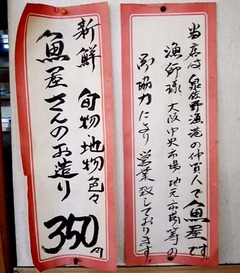 当店は泉佐野漁港の仲買人で魚屋です
漁師様 大阪中央市場 地元市場等の
ご協力により営業致しております
新鮮 旬物地物色々
魚屋さんのお造り
350円